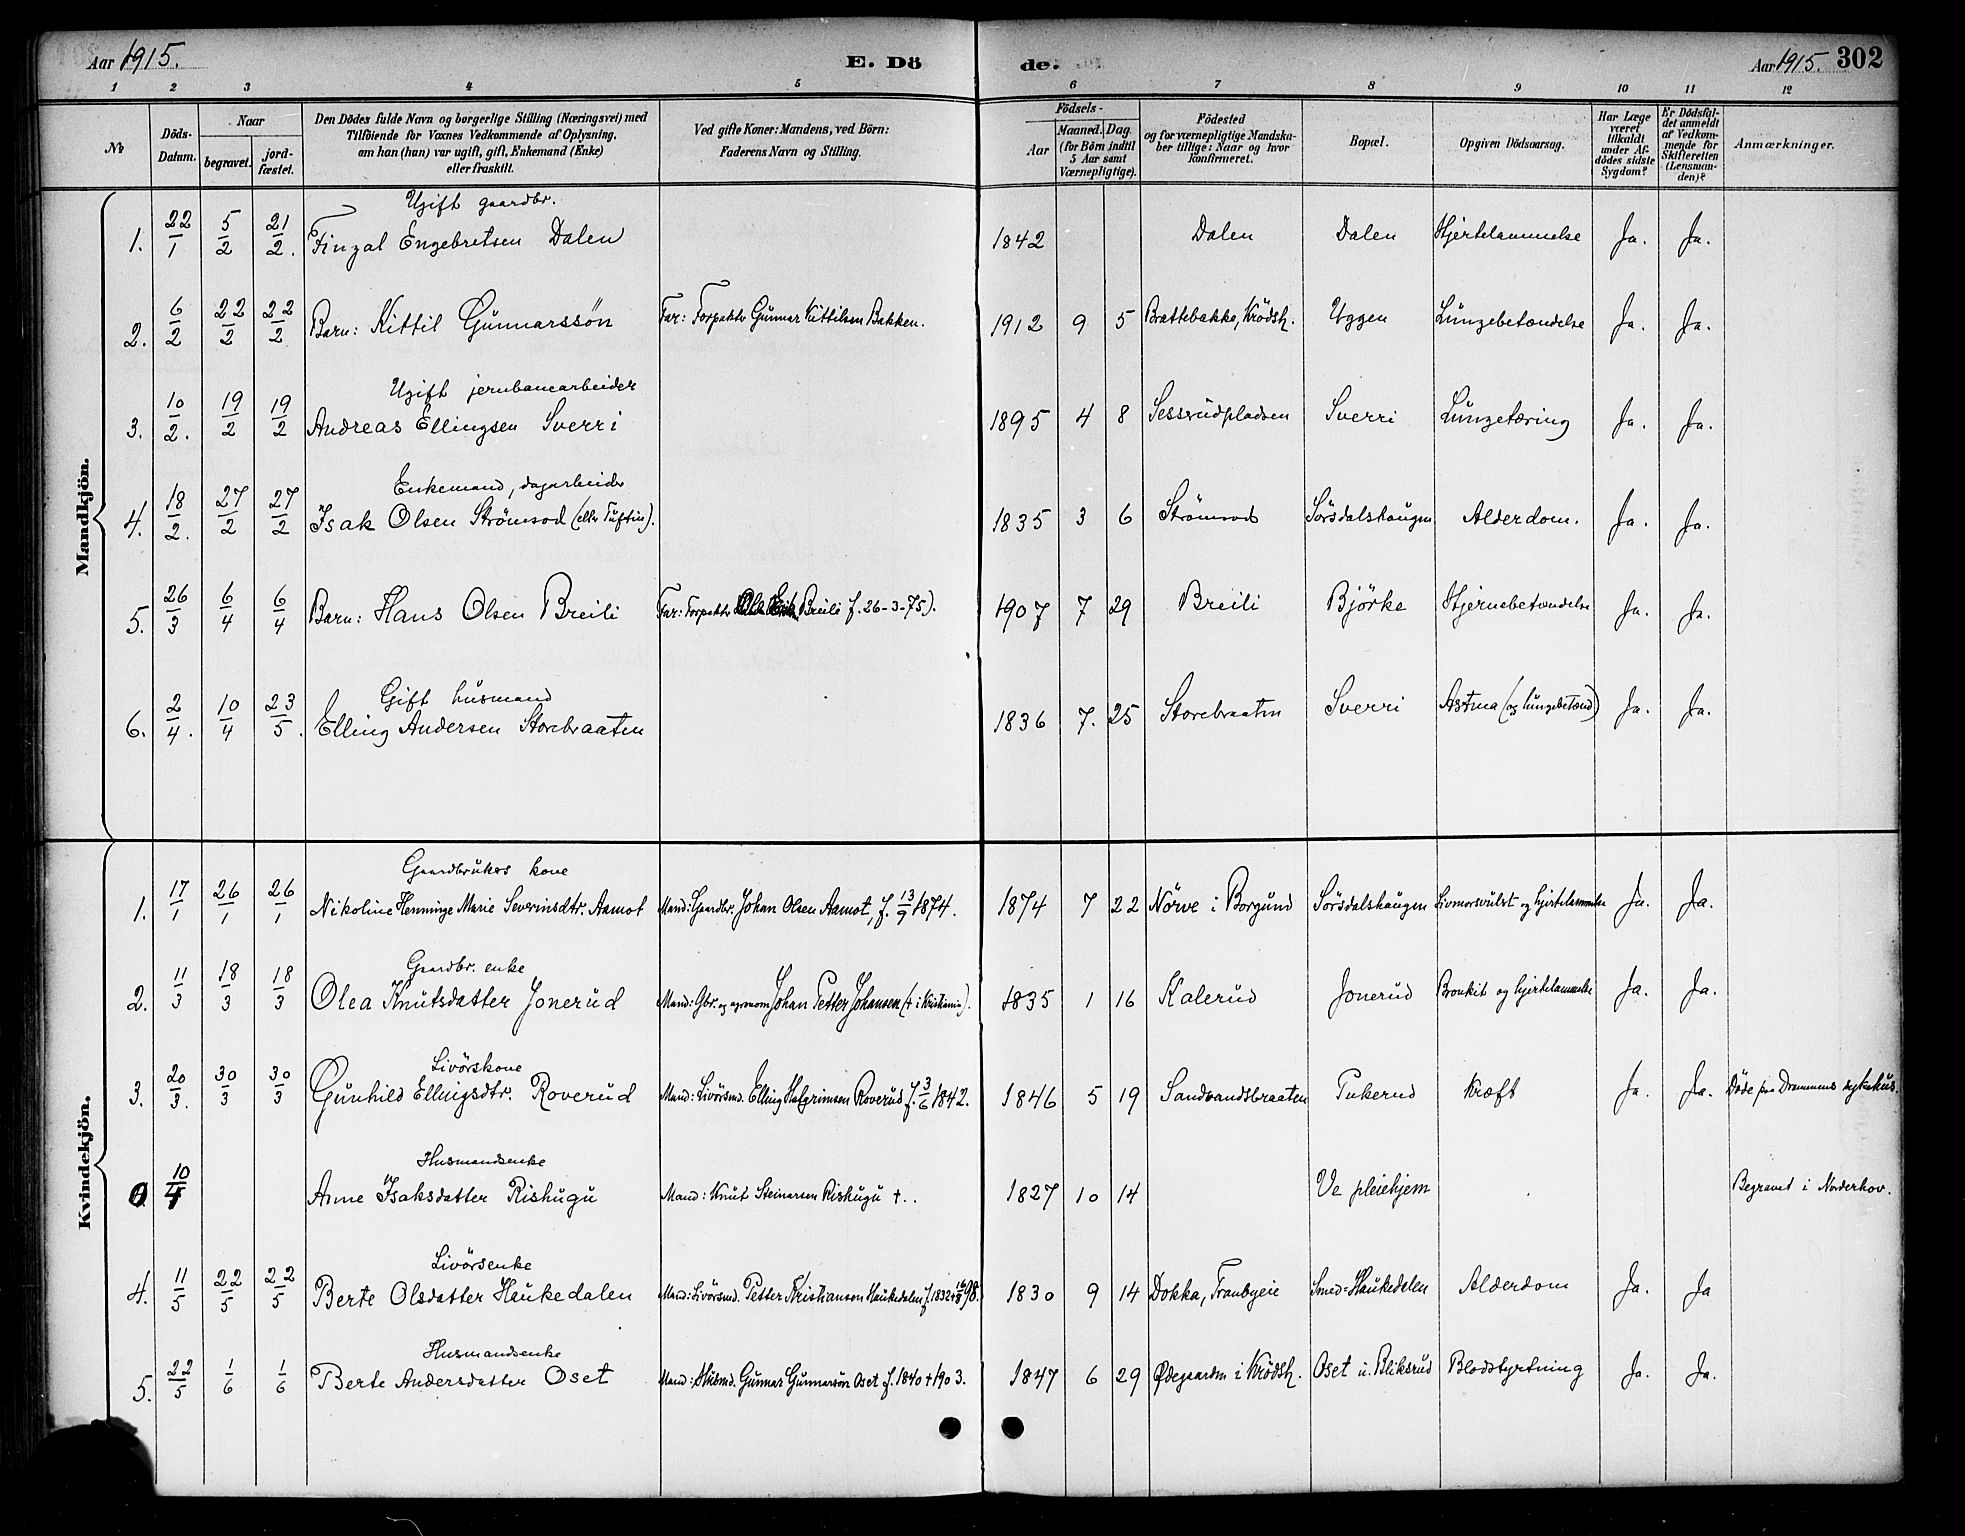 Aar 1915. E. Dö de. Aar 1915. 302
1 2 3 4 5 6 7 8 9 10 11 12
№ Döds-Datum. Naar begravet. jordfæstet. Den Dödes fulde Navn og borgerlige Stilling (Næringsvei) med Tilföiende for Voxnes Vedkommende af Oplysning, om han (hun) var ugift, gift, Enkemand (Enke) eller fraskilt. Ved gifte Koner: Mandens, ved Börn: Faderens Navn og Stilling. Födsels- Aar Maaned. Dag. (for Börn indtil 5 Aar samt Værnepligtige). Födested og for værnepligtige Mandskaber tillige: Naar og hvor konfirmeret. Bopæl. Opgiven Dödsaarsag. Har Læge været tilkaldt under Afdödes sidste Sygdom? Er Dödsfaldet anmeldt af Vedkommende for Skifteretten (Lensmanden)? Anmærkninger.
Mandkjön.
Ugift gaardbr.
1. 22/1 5/2 21/2. Fingal Engebretsen Dalen 1842 Dalen Dalen Hjertelammelse Ja. Ja.
2. 6/2 22/2 22/2 Barn: Kittil Gunnarssön Far: Forpakter Gunnar Kittilsen Bakken. 1912 9 5 Brattebakke, Krödsh. Uggen Lungebetændelse Ja. Ja.
Ugift jernbanearbeider
3. 10/2. 19/2 19/2 Andreas Ellingsen Sverri 1895 4 8 Sessrudpladsen Sverri Lungetæring Ja. Ja.
Enkemand, dagarbeider
4. 18/2. 27/2 27/2 Isak Olsen Strömsod (eller Tuftin). 1835 3 6 Strömsod Sörsdalshaugen Alderdom. Ja. Ja.
5. 26/3 6/4 6/4 Barn: Hans Olsen Breili Far: Forpakter Breili f. 26-3-75). 1907 7 29 Breili Björke Hjernebetændelse Ja. Ja.
Gift husmand
6. 2/4. 10/4 23/5. Elling Andersen Storebraaten 1836 7. 25 Storebraaten Sverri Astma (og lungebetænd) Ja. Ja.
Kvindekjön.
Gaardbrukers kone
1. 17/1 26/1 26/1 Nikoline Henninge Marie Severinsdtr. Aamot Mand: Gaardbr. Johan Olsen Aamot, f. 13/9 1874. 1874 7 22 Nörve i Borgund Sörsdalshaugen Livmorsvulst og hjertelammelse Ja. Ja.
Gaardbr. enke
2. 11/3 18/3 18/3 Olea Knutsdatter Jonerud Mand: Gbr. og agronom Johan Petter Johansen († i Kristiania). 1835 1 16 Kalerud Jonerud Bronkit og hjertelammelse Ja. Ja.
Livörskone
3. 20/3. 30/3 30/3 Gunhild Ellingsdtr. Roverud Mand: Livörsmd. Elling Halgrimsen Roverud f. 3/6 1842. 1846 5 19 Sandvandsbraaten Tukerud Kræft Ja. Ja. Döde paa Drammens sykehus.
Husmandsenke
0 10/4 Anne Isaksdatter Rishugu Mand: Knut Steinarsen Rishugu †. 1827 10 14 Ve pleiehjem Begravet i Norderhov.
Livörsenke
4. 11/5 22/5 22/5 Berte Olsdatter Haukedalen Mand: Livörsmd. Petter Kristiansen Haukedalen f. 1832 † 98. 1830 9 14 Dokka, Tranbygeie Smed-Haukedalen Alderdom Ja. Ja
Husmandsenke
5. 22/5 1/6 1/6 Berte Andersdatter Oset Mand: Husmd. Gunnar Gunnarsön Oset f. 1840 † 1903. 1847 6 29 Ødegaarden i Krödsh. Oset u. Bliksrud Blodstyrtning Ja. Ja.